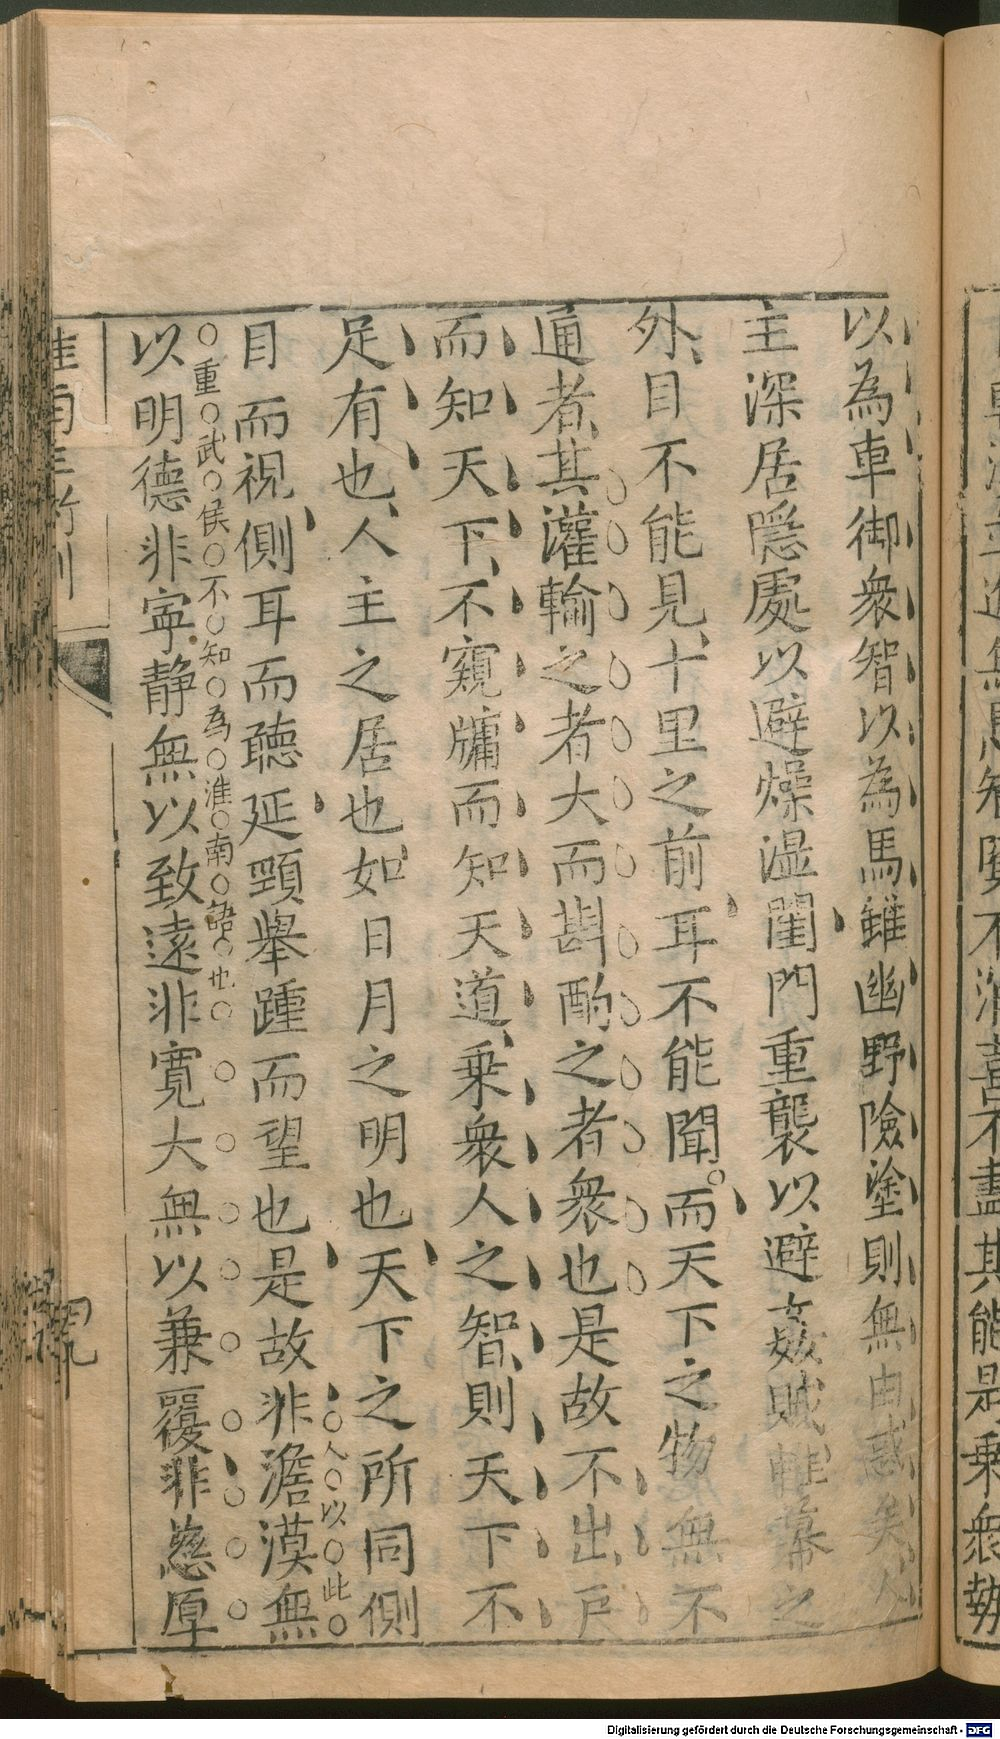 以為車御衆智以為馬雖幽野險塗則無由惑矣人
主深居隱處以避燥湿閨門重襲以避姦賊帷幕之
外目不能見十里之前耳不能聞而天下之物無不
通者其灌輸之者大而斟酌之者衆也是故不出戶
而知天下不窺牖而知天道乗衆人之智則天下不
足有也人主之居也如日月之明也天下之所同側
目而視側耳而聴延頸舉踵而望也是故非澹漠無
人以此重武侯不知為淮南語也
以明德非寕静無以致遠非寛大無以兼覆非慈厚
其能是乗衆埶
Digitalisierung gefördert durch die Deutsche Forschungsgemeinschaft - DFG